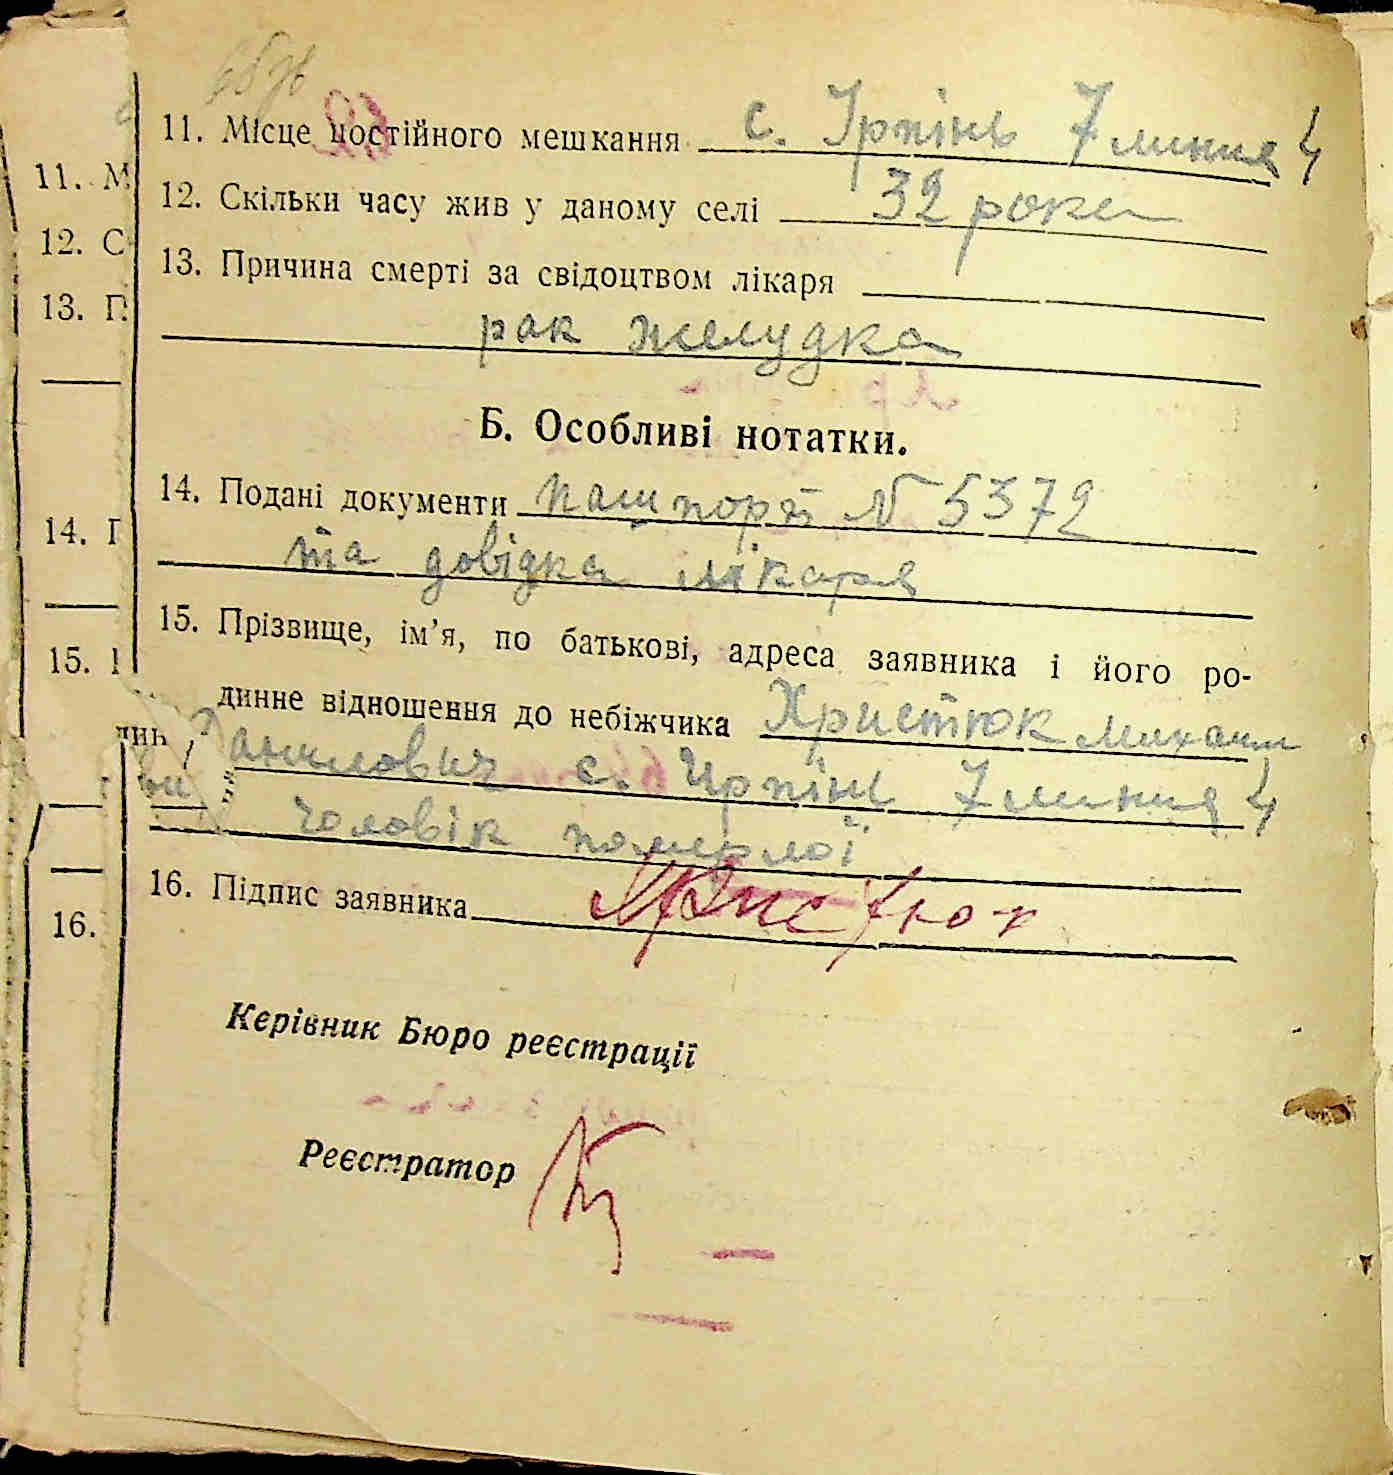 11. Місце постійного мешкання с. Ірпінь 7 линия 4
11. М
12. Скільки часу жив у даному селі 32 роки
12. С
13. Причина смерті за свідоцтвом лікаря
13. П
рак желудка
Б. Особливі нотатки.
14. Подані документи пашпорт № 5372
14. П
та довідка лікаря
15. Прізвище, ім’я, по батькові, адреса заявника і його ро-
15.
динне відношення до небіжчика Христюк Михаил
Данилович с. Ирпінь 7 линия 4
чоловік померлої
16. Підпис заявника Христюк
16.
Керівник Бюро реєстрації
Реєстратор